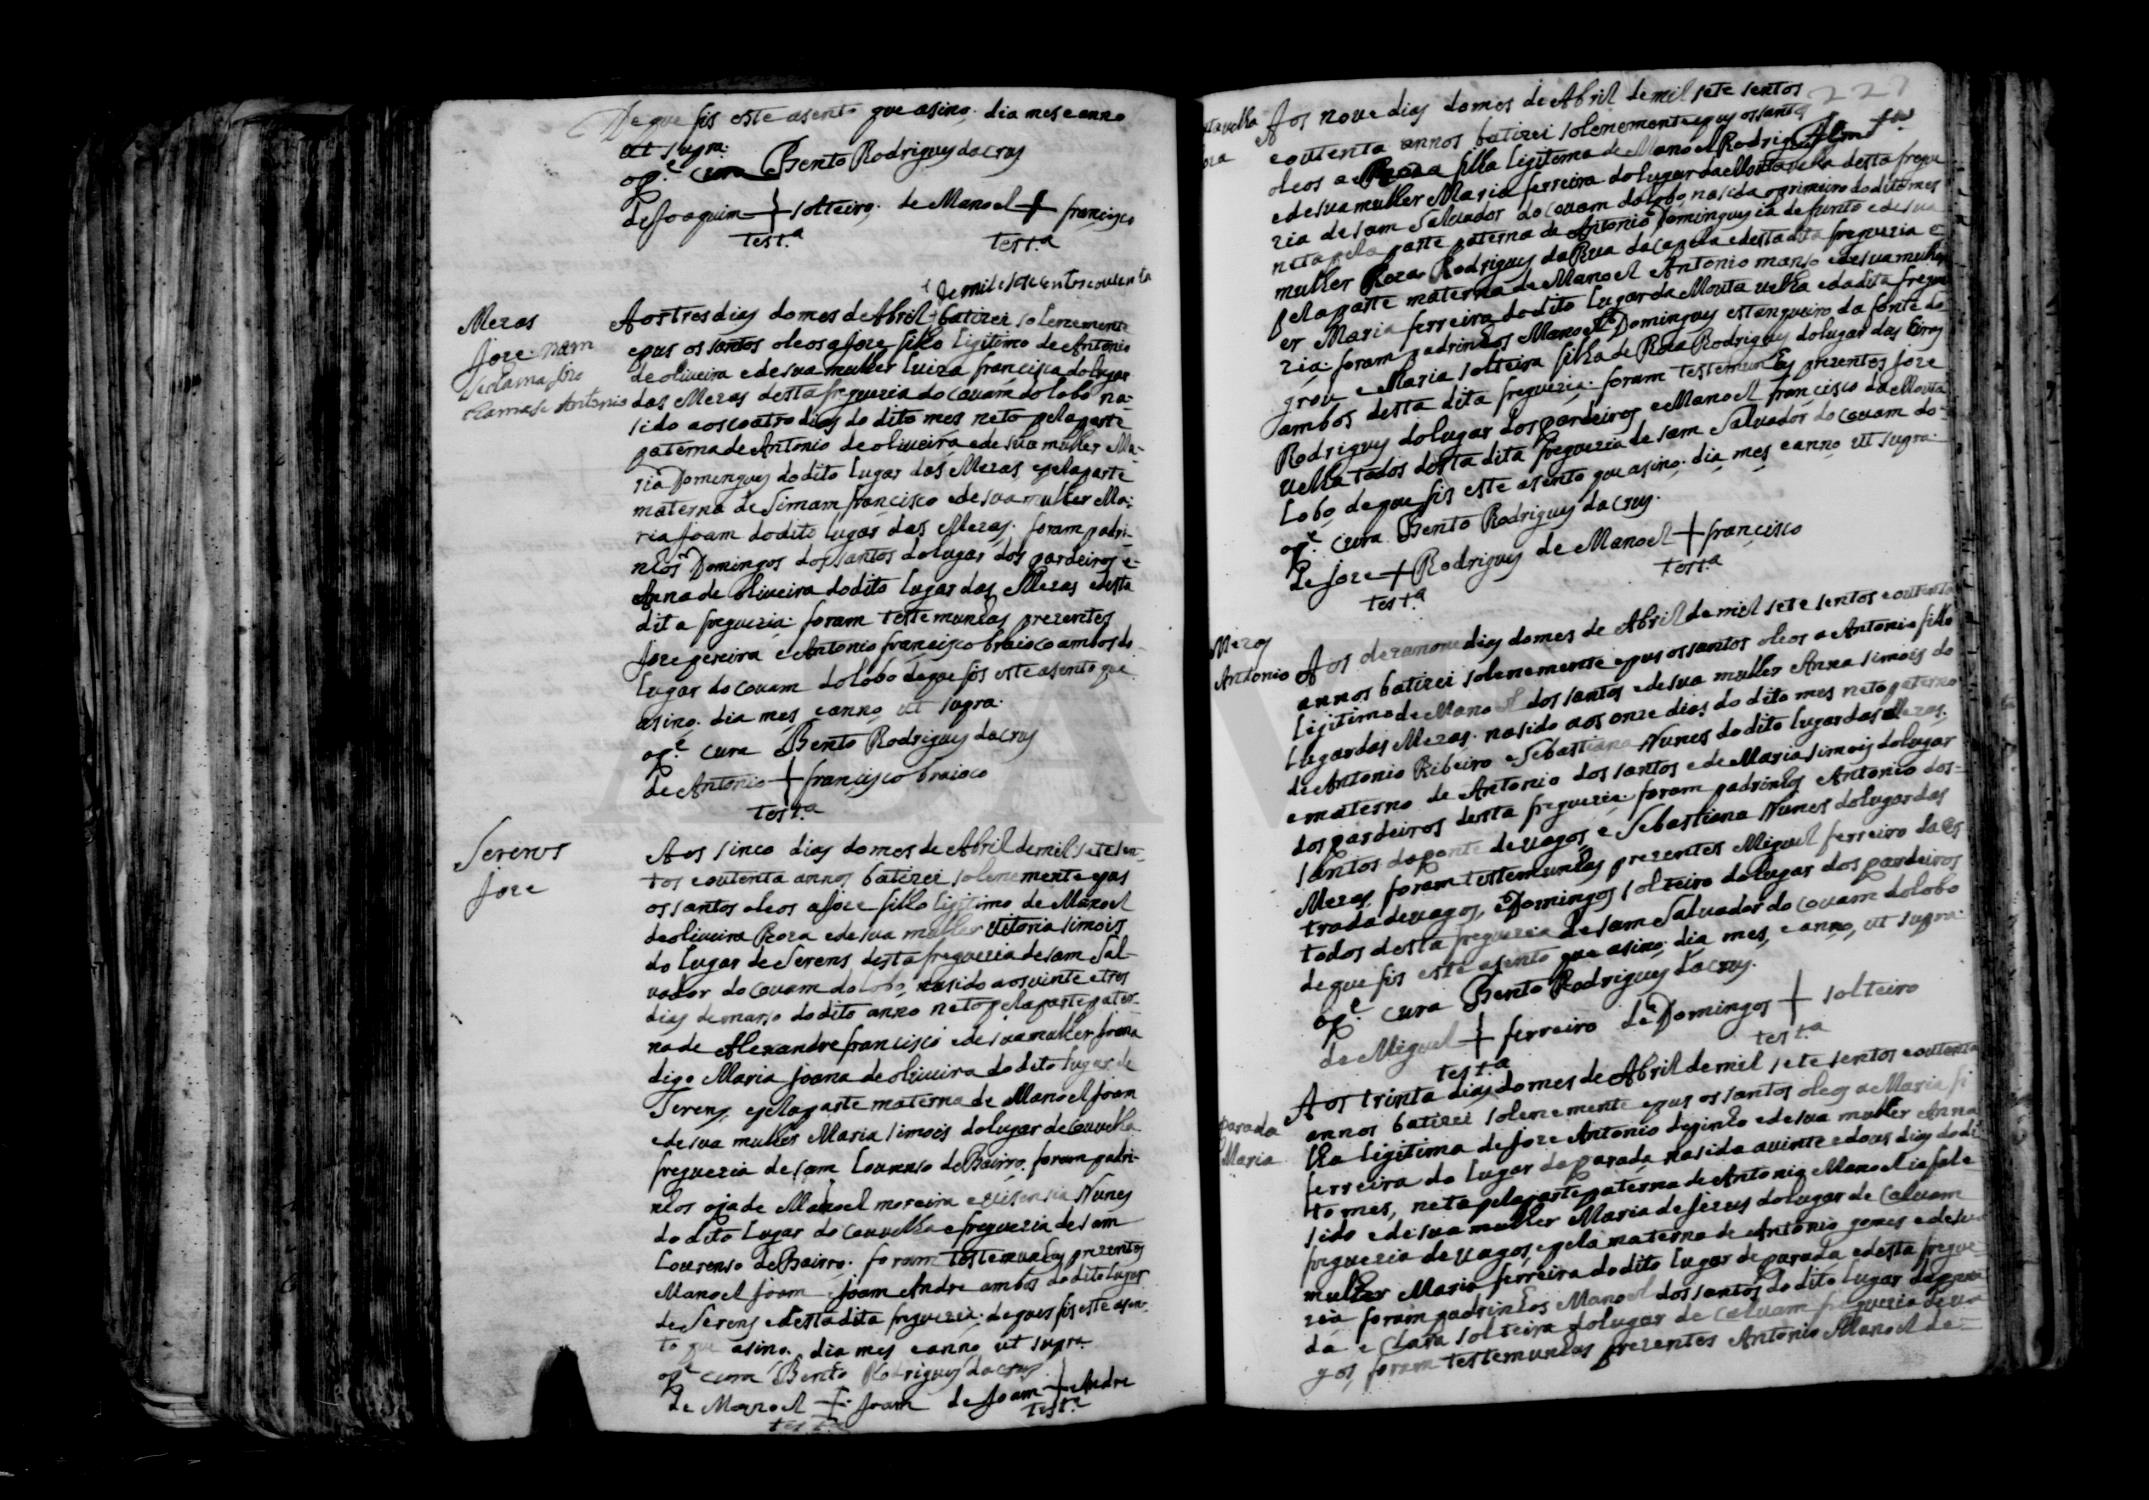 De que fis este asento que asino. dia mes e anno
ut supra.
o p.e cura Bento Rodrigues da crus
de Joaquim + solteiro. de Manoel + francisco
test.a test.a
+ de mil e sete centos e outenta
Mezas
Joze nam
se chama Joze
chamase Antonio
Aos tres dias do mes de Abril + batizei solenemente
e pus os santos oleos a Joze filho ligitimo de Antonio
de oliveira e de sua mulher Luiza francisca do lugar
das Mezas desta freguezia do Couam do lobo na-
sido aos coatro dias do dito mes neto pela parte
paterna de Antonio de oliueira e de sua mulher Ma-
ria Domingues do dito lugar das Mezas, e pela parte
materna de Simam francisco e de sua mulher Ma-
ria Joam do dito lugar das Mezas. foram padri-
nhos Domingos dos santos do lugar dos pardeiros e-
Anna de oliveira do dito lugar das Mezas e desta
dita freguezia. foram testemunhas prezentes
Joze pereira e Antonio francisco braioco ambos do
lugar do couam do lobo de que fis este asento que
asino. dia mes e anno ut supra.
o p.e cura Bento Rodrigues da crus
de Antonio + francisco braioco
test.a
Serenos
Joze
Aos sinco dias do mes de Abril de mil sete sen-
tos e outenta annos batizei solenemente e pus
os santos oleos a Joze filho ligitimo de Manoel
de oliueira Roza e de sua mulher Vitoria simois
do lugar de Serens desta freguezia de sam Sal-
uador do Couam do lobo, nasido aos uinte e tres
dias de marso do dito anno neto pela parte pater-
na de Alexandre francisco e de sua mulher Joana
digo Maria Joana de oliueira do dito lugar de
Serens, e pela parte materna de Manoel Joam
e de sua mulher Maria simois do lugar de Couvelha
freguezia de sam Lourenso de Bairro. foram padri-
nhos oja de Manoel moreira e Visensia Nunes
do dito lugar do Couvelha e freguezia de sam
Lourenso de Bairro. foram testemunhas prezentes
Manoel Joam e Joam Andre ambos do dito lugar
de Serens e desta dita freguezia. de que fis este asen-
to que asino. dia mes e anno ut supra.
o p.e cura Bento Rodrigues da crus
de Manoel + Joam de Joam + Andre
test.a test.a
227
Aos noue dias do mes de Abril de mil sete sentos
e outenta annos batizei solenemente e pus os santos
oleos a Roza filha ligitima de Manoel Rodrigues
e de sua mulher Maria ferreira do lugar da Mouta uelha desta fregue
zia de sam Saluador do couam do lobo, nasida o primeiro do dito mes
neta pela parte paterna de Antonio Domingues ia defunto e de sua
mulher Roza Rodrigues da Rua da capela e desta dita freguezia e
pela parte materna de Manoel Antonio manso e de sua mulher
er Maria ferreira do dito lugar da Mouta uelha e da dita fregue
zia. foram padrinhos Manoel Domingues estanqueiro da fonte do
grou e Maria solteira filha de Roza Rodrigues do lugar das Eiras
ambos desta dita freguezia. foram testemunhas prezentes Joze
Rodrigues do lugar dos pardeiros e Manoel francisco da Mouta
uelha todos desta dita freguezia de sam Saluador do Couam do-
Lobo, de que fis este asento que asino. dia mes e anno ut supra.
o p.e cura Bento Rodrigues da crus.
de Joze + Rodrigues de Manoel + francisco
test.a test.a
Mezas
Antonio
Aos dezanoue dias do mes de Abril de mil sete sentos e outenta
annos batizei solenemente e pus os santos oleos a Antonio filho
ligitimo de Manoel dos santos e de sua mulher Anna simois do
lugar das Mezas. nasido aos onze dias do dito mes neto paterno
de Antonio Ribeiro e Sebastiana Nunes do dito lugar das Mezas.
e materno de Antonio dos santos e de Maria simois do lugar
dos pardeiros desta freguezia. foram padrinhos Antonio dos-
santos da ponte de uagos, e Sebastiana Nunes do lugar das
Mezas, foram testemunhas prezentes Miguel ferreiro da es
trada de uagos, e Domingos solteiro do lugar dos pardeiros
todos desta freguezia de sam Saluador do couam do lobo
de que fis este asento que asino. dia mes, e anno, ut supra.
o p.e cura Bento Rodrigues da crus.
de Miguel + ferreiro de Domingos + solteiro
test.a test.a
parada
Maria
Aos trinta dias do mes de Abril de mil sete sentos e outenta
annos batizei solenemente e pus os santos oleos a Maria fi
lha ligitima de Joze Antonio dejinto e de sua mulher Anna
ferreira do lugar da parada nasida a uinte e dous dias do di
to mes, neta pela parte paterna de Antonio Manoel ia fale
sido e de sua mulher Maria de Jezus do lugar de Caluam
freguezia de uagos, e pela materna de Antonio gomes e de sua
mulher Maria ferreira do dito lugar de parada e desta fregue-
zia foram padrinhos Manoel dos santos do dito lugar da para
da e Clara solteira do lugar de Caluam freguezia de ua
gos, foram testemunhas prezentes Antonio Manoel de-